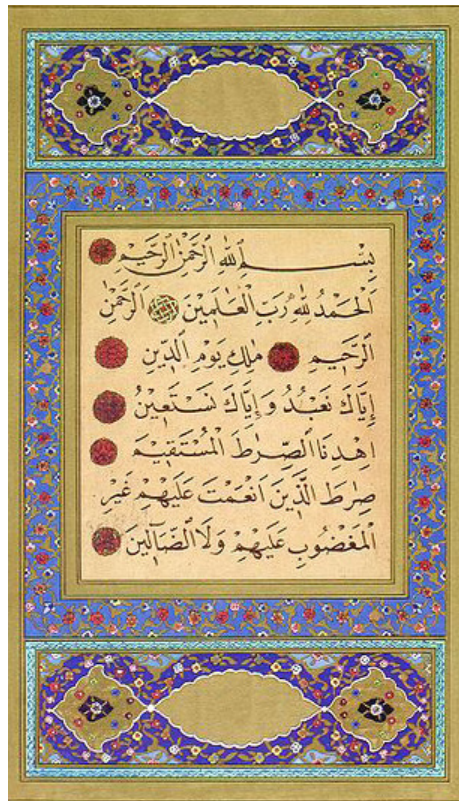 بِسْــــمِ اللهِ الرَّحْمٰنِ الرَّحِيمِ
اَلْحَمْدُ لِلّٰهِ رَبِّ الْعَالَمِينَ اَلرَّحْمٰنِ
الرَّحِيمِ مٰلِكِ يَوْمِ الدِّينِ
إِيَّاكَ نَعْبُدُ وَإِيَّاكَ نَسْتَعِينُ
اِهْدِنَا الصِّرٰطَ الْمُسْتَقِيمَ
صِرٰطَ الَّذِينَ اَنْعَمْتَ عَلَيْهِمْ غَيْرِ
الْمَغْضُوبِ عَلَيْهِمْ وَلَا الضَّالِّينَ